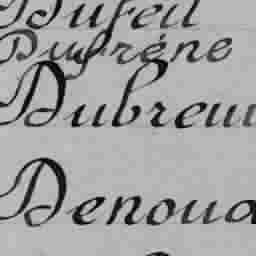 Dufeil
Dufréne
Dubreui
Denoua